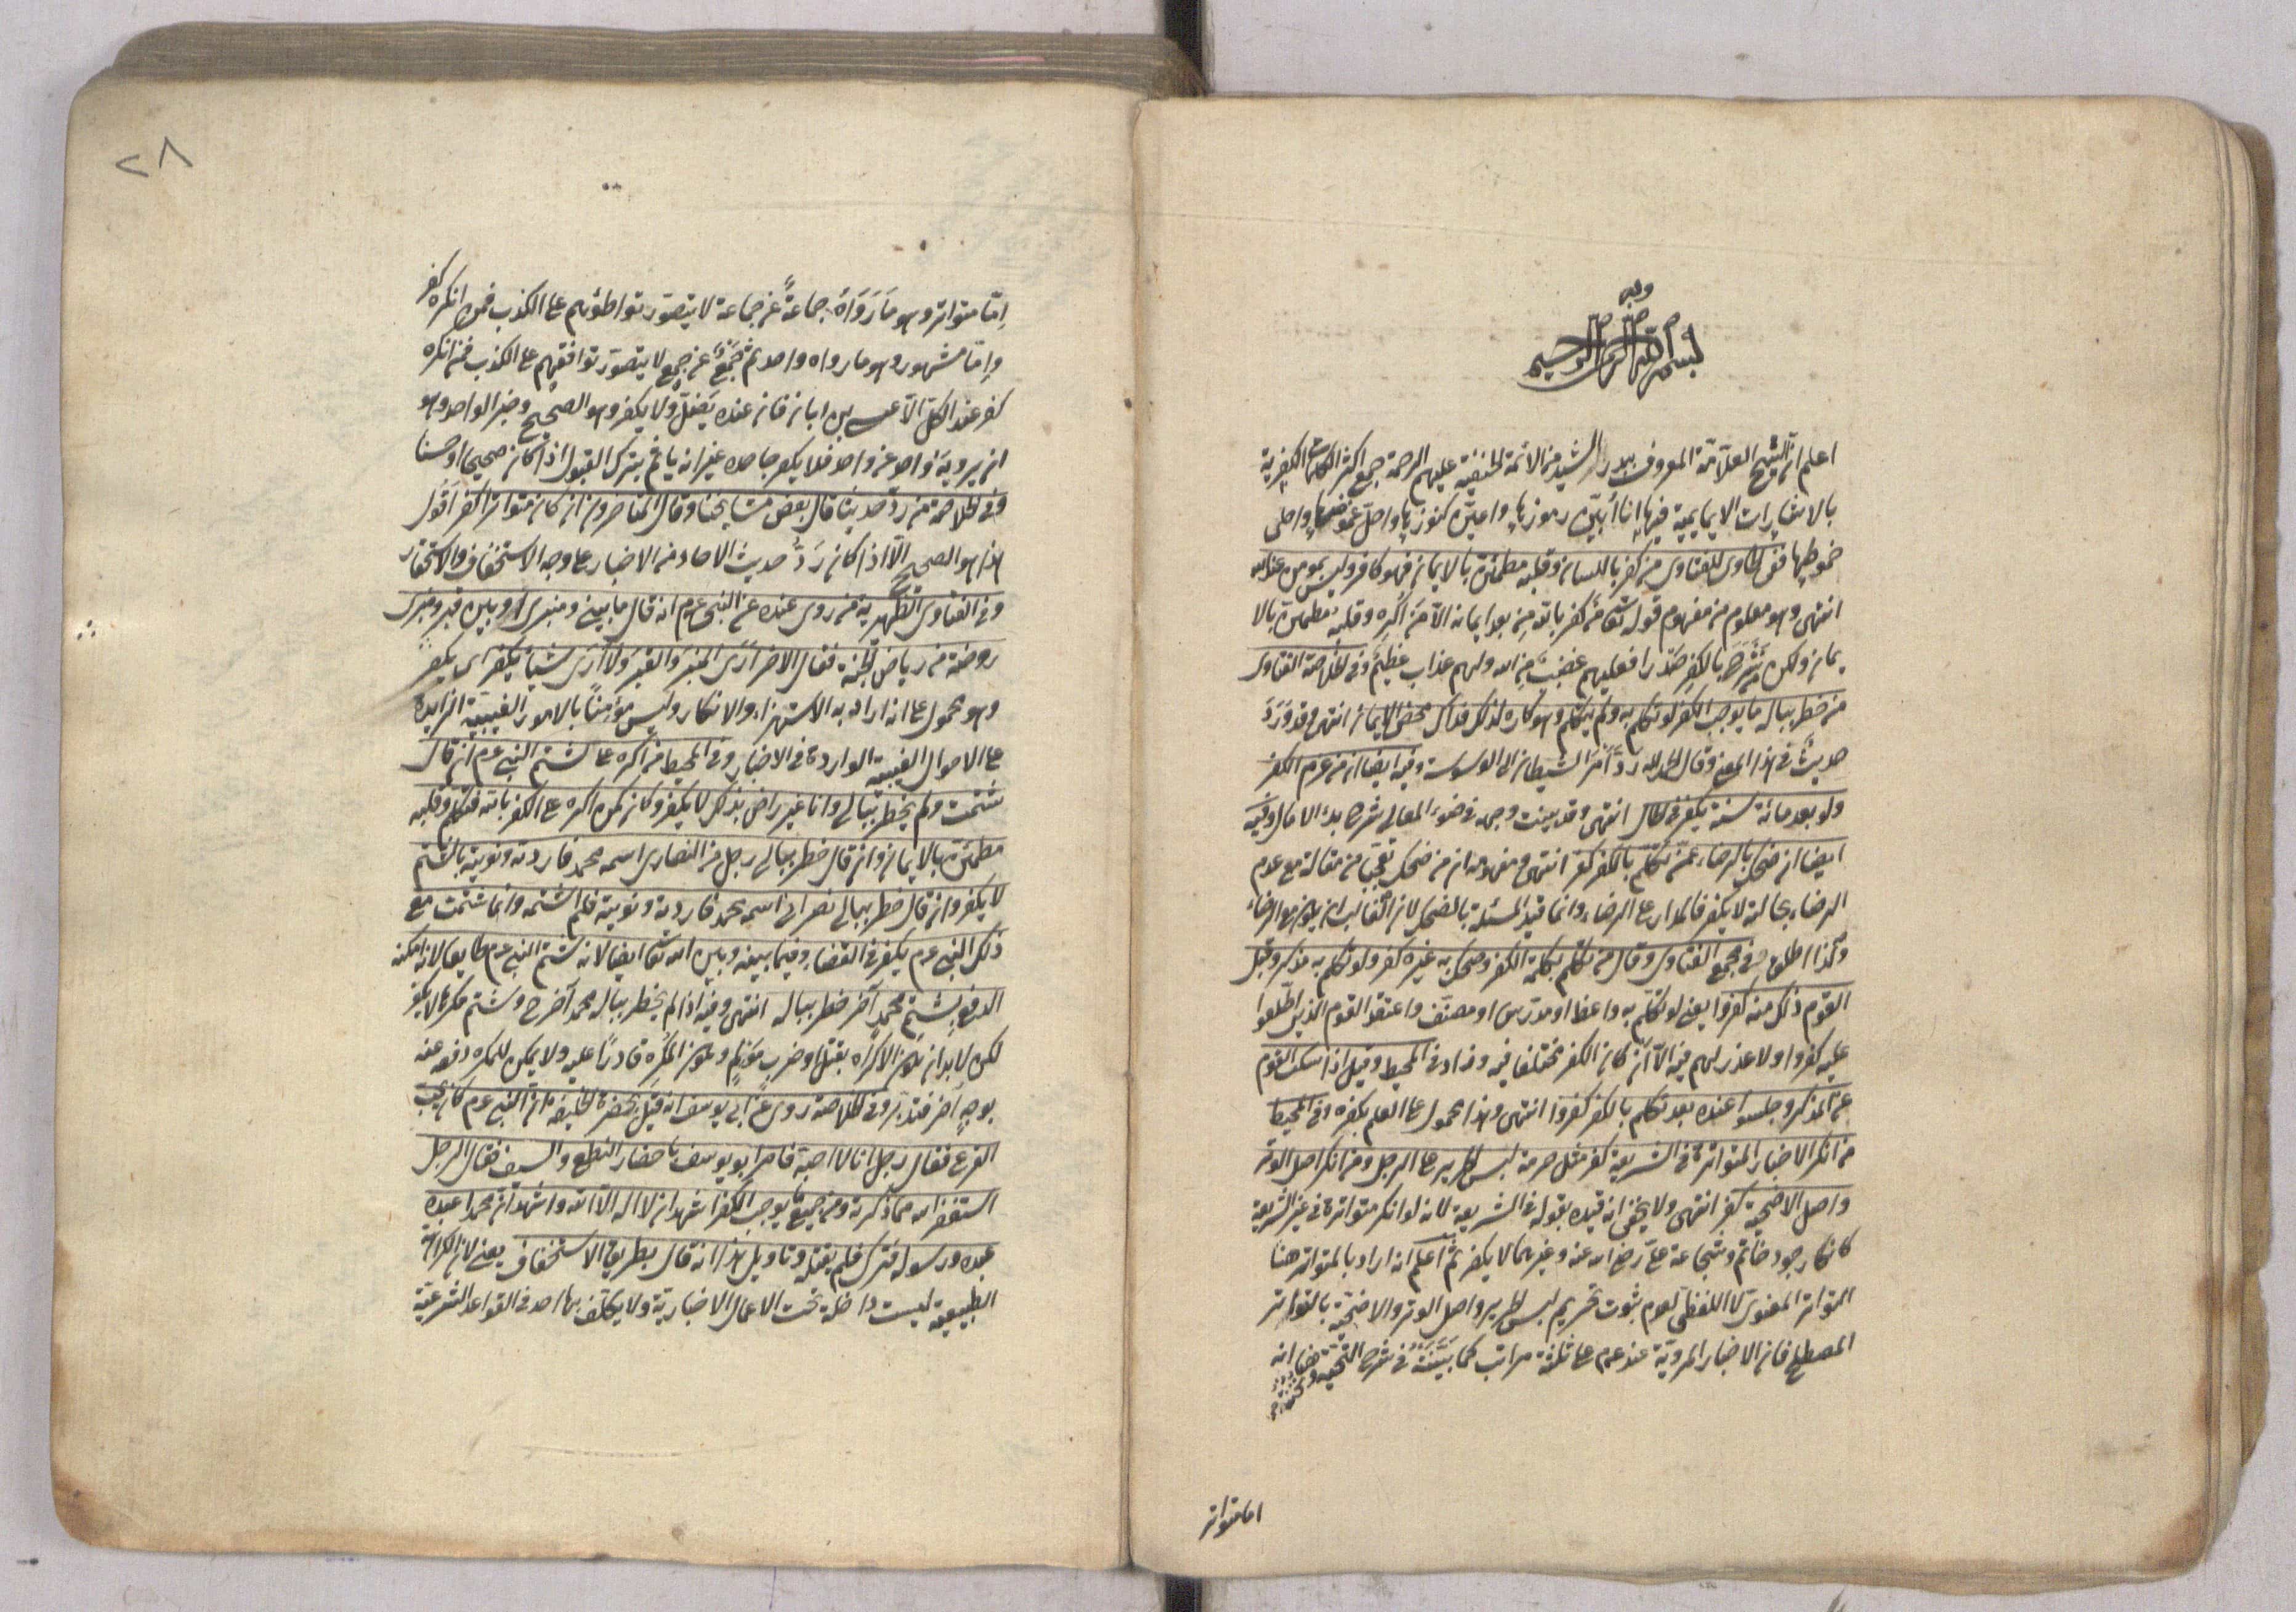 وبه
بسم الله الرحمن الرحيم
اعلم ان الشيخ العلامة المعروف ببدر الرشيد من الائمة الحنفية عليهم الرحمة جمع اكثر الكلمات الكفرية
بالاشارات الايمايية فها انا أبيّن رموزها واعيّن كنوزها واحلّ غموضها واجلى
غموطها ففى الحاوى للفتاوى من كفر باللسان وقلبه مطمئن بالايمان فهو كافر وليس بمومن عند الله
انتهى وهو معلوم من مفهوم قوله تعا من كفر بالله من بعد ايمانه الا من أكره وقلبه مطمئن بالا
يمان ولكن من شرح بالكفر صدرا فعليهم غضب من الله ولهم عذاب عظيم وفى خلاصة الفتاوى
من خطر بباله ما يوجب الكفر لو تكلم به ولم يتكلم وهو كاره لذلك فذاك محض الايمان انتهى وقد ورد
حديث فى هذا المعنى وقال الحمد لله ردّ أمر الشيطان الى الوسوسة وفيه ايضا ان من عزم الكفر
ولو بعد مائة سنة يكفر فى الحال انتهى وقد بينت وجهه فى ضوء المعالى شرح بدء الامالى وفيه
ايضا ان ضحك بالرضاء عمن تكلم بالكفر كفر انتهى ومفهومه ان من ضحك تعجبا من مقالة مع عدم
الرضاء بحالته لا يكفر فالمدار على الرضاء وانما قيد المسئلة بالضحك لان الغالب ان يكون مع الرضاء
ولذا اطلق فى مجمع الفتاوى وقال من تكلم بكلمة الكفر وضحك به غيره كفر ولو تكلم به مذكر وقبل
القوم ذلك منه كفروا يعنى لو تكلم به واعظ او مدرس او مصنف واعتقد القوم الذين اطّلعوا
عليه كفروا ولا عذر لهم فيه الّا أن كان الكفر مختلفا فيه وزاد فى المحيط وقيل اذا سكت القوم
عن المذكر وجلسوا عنده بعد تكلم بالكفر كفروا انتهى وهذا محمول على العلم بكفره وفى المحيط
من انكر الاخبار المتواترة فى الشريعة كفر مثل حرمة لبس الحرير على الرجل ومن انكر اصل الوتر
واصل الاضحية كفر انتهى ولا يخفى انه قيده بقوله فى الشريعة لانه لو انكر متواترة فى غير الشريعة
كانكار جود حاتم وشجاعة على رضى الله عنه وغيرهما لا يكفر ثم اعلم انه اراد بالمتواتر هنا
المتواتر المعنوى لا اللفظى لعدم ثبوت تحريم لبس الحرير واصل الوتر والاضحية بالتواتر
المصطلح فان الاخبار المروية عنه عرم على ثلثة مراتب كما بيّنته فى شرح النخبة
اما متواتر
٢٨
إمّا متواتر وهو ما رواه جماعةٌ عن جماعة لا يتصور تواطؤهم على الكذب فمن انكره كفر
وإمّا مشهور وهو ما رواه واحد ثم جمعٌ عن جمع لا يتصور توافقهم على الكذب فمن انكره
كفر عند الكل الّا عيسى بن ابان فان عنده يضلّ ولا يكفر وهو الصحيح وخبر الواحد وهو
ان يرويه واحد عن واحد فلا يكفر جاحده غير انه ياثم بترك القبول اذا كان صحيحا او حسنا
وفى الخلاصة من ردّ حديثا قال بعض مشايخنا وقال المتاخرون ان كان متواترا كفر أقول
هذا هو الصحيح الّا اذا كان ردّ حديث الاحاد من الاخبار على وجه الاستخفاف والاستحقار
وفى الفتاوى الظهيرية من روى عنده عن النبى عرم انه قال ما بين بيتى ومنبرى او بين قبرى ومنبرى
روضة من رياض الجنة فقال الاخر أرى المنبر والقبر ولا أرى شيئا يكفر اى يكفر
وهو محمول على انه اراد به الاستهزاء والانكار وليس مؤمنا بالامور الغيبية الزايدة
على الاحوال الغيبية الواردة فى الاخبار وفى المحيط من اكره على شتم النبى عرم ان قال
شتمت ولم يخطر ببالى وانا غير راض بذلك لا يكفر وكان كمن اكره على الكفر بالله فتكلم وقلبه
مطمئن بالايمان وان قال خطر ببالى رجل من النصارى اسمه محمد فاردته ونويته بالشتم
لا يكفر وان قال خطر ببالى نصرانى اسمه محمد فاردته ونويته فلم اشتمه وانما شتمت مع
ذلك النبى عرم يكفر فى القضاء وفيما بينه وبين الله تعا ايضا لانه شتم النبى عرم طايعا لانه امكنه
الدفع بشتم محمد آخر خطر بباله انتهى وفيه اذا لم يخطر بباله محمد آخر وشتم مكرها لا يكفر
لكن لا بد ان يكون الاكراه بقتل او ضرب مؤلم ويكون المكره قادرا عليه ولا يمكن للمكره دفعه عنه
بوجه آخر فتدبر وفى الخلاصة روى عن ابى يوسف انه قيل بحضرة الخليفة ان النبى عرم كان يحب
القرع فقال رجل انا لا احبه فامر ابو يوسف باحضار النطع والسيف فقال الرجل
استغفر الله مما ذكرته ومن جميع ما يوجب الكفر اشهد ان لا اله الا الله واشهد ان محمدا عبده
عبده ورسوله فترك فلم يقتله وتاويل هذا انه قال بطريق الاستخفاف يعنى لان الكراهة
الطبيعية ليست داخلة تحت الاعمال الاختيارية ولا يكلف بها احد فى القواعد الشرعية